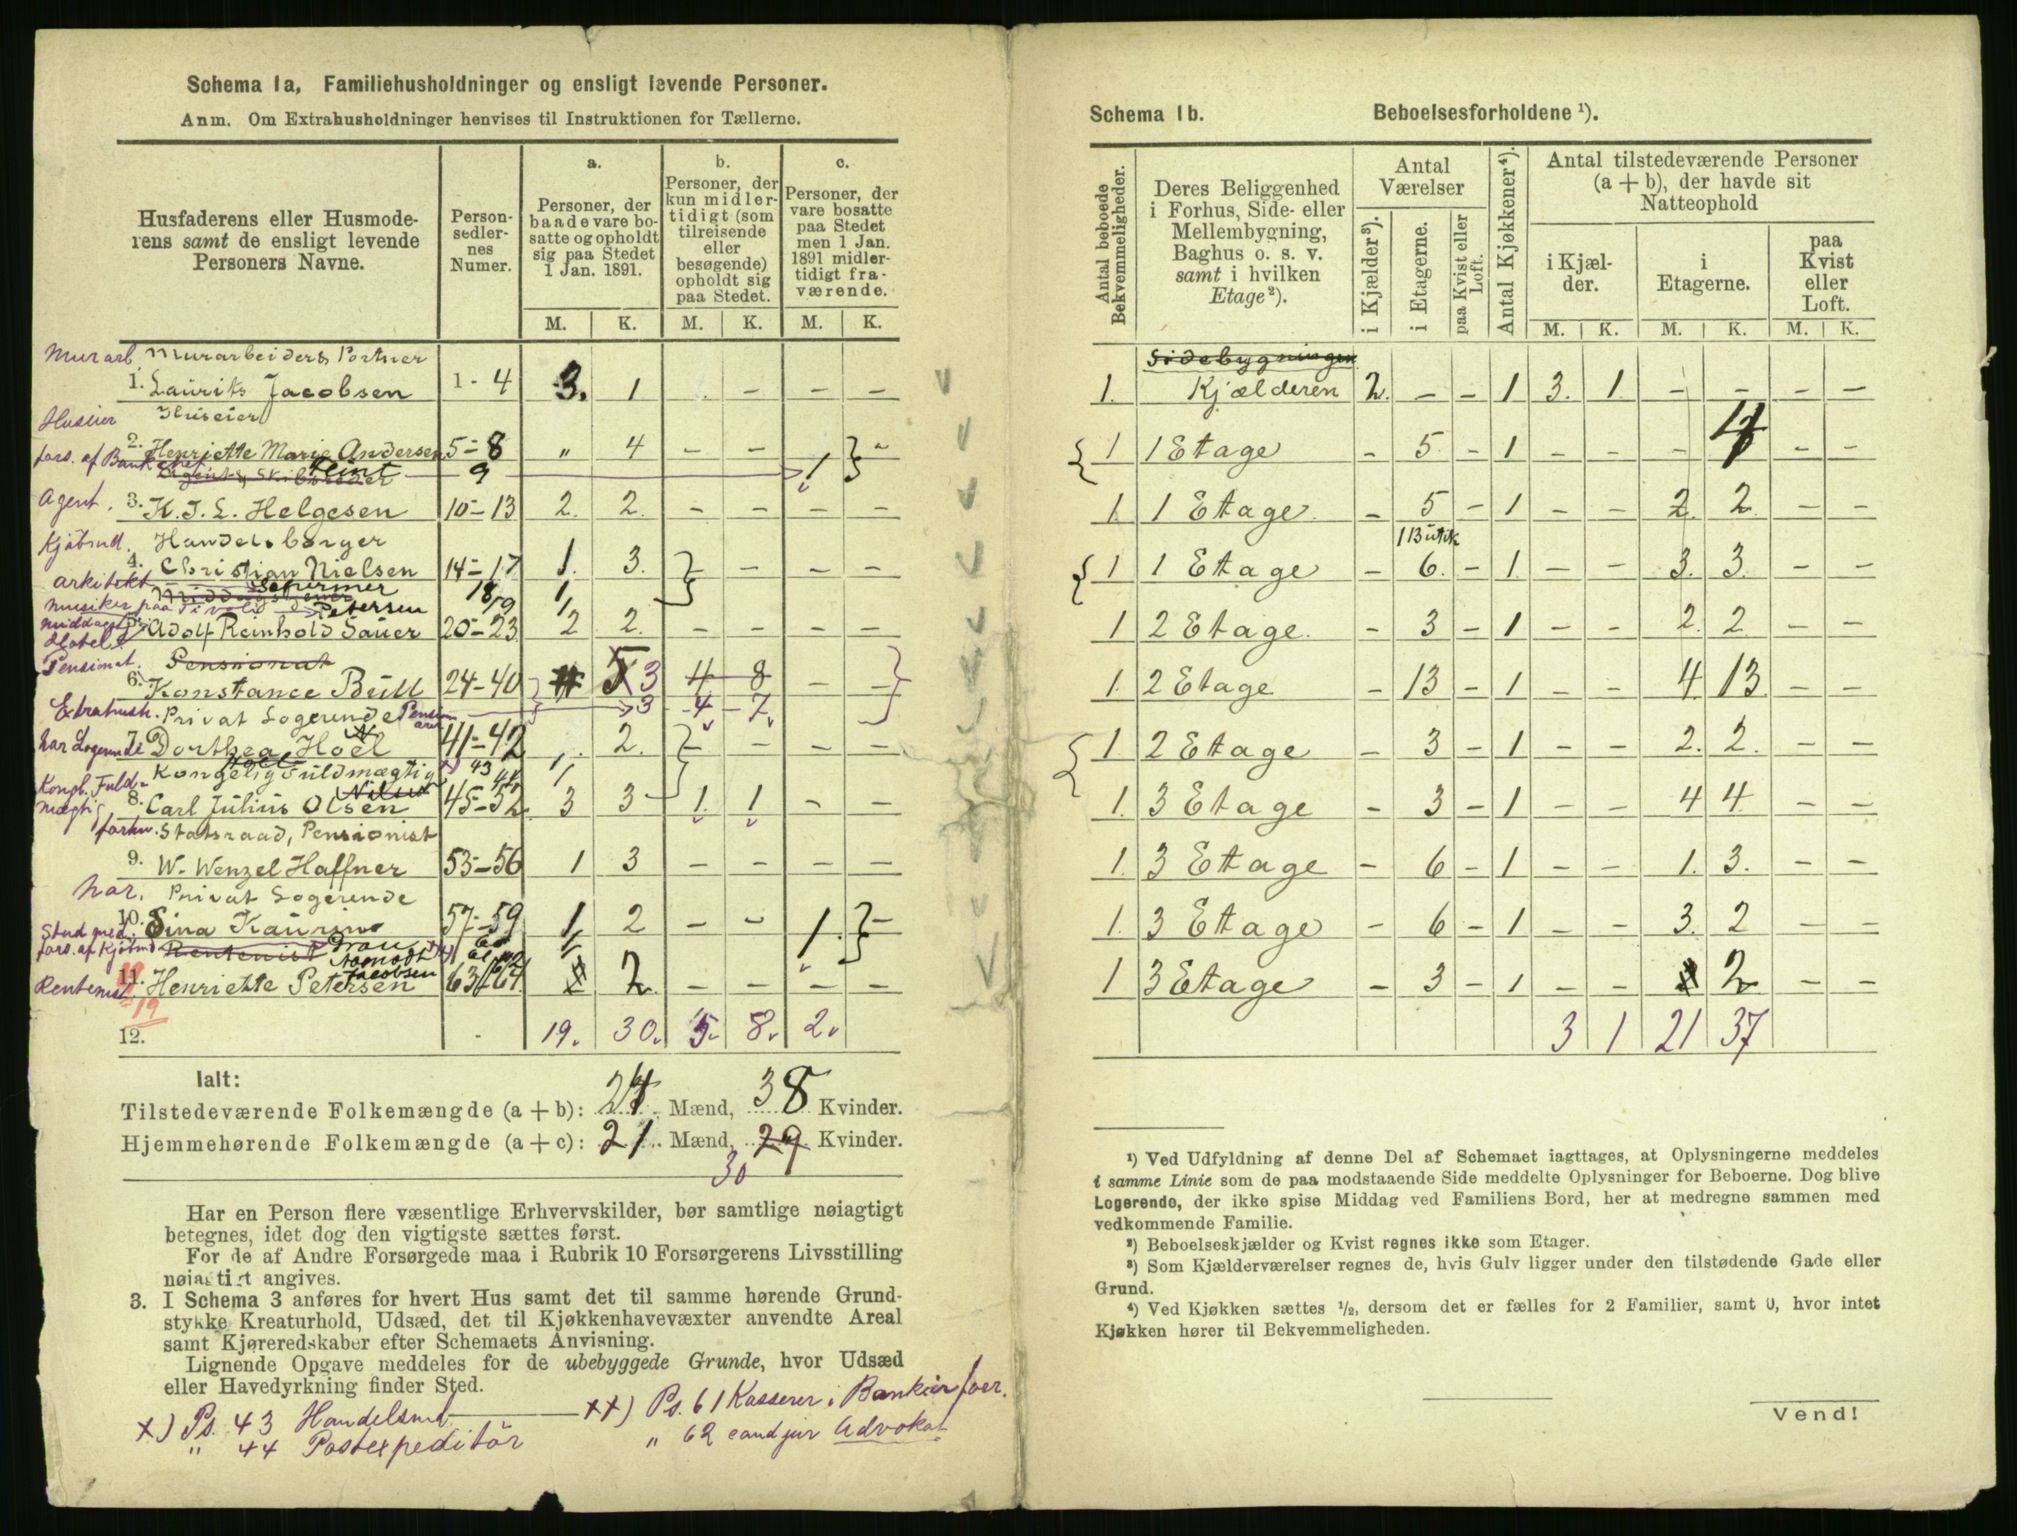 Schema 1a, Familiehusholdninger og ensligt levende Personer.
Anm. Om Extrahusholdninger henvises til Instruktionen for Tællerne.
Husfaderens eller Husmoderens samt de ensligt levende Personers Navne.
Personsedlernes Numer.
a. Personer, der baade vare bosatte og opholdt sig paa Stedet 1 Jan. 1891.
b. Personer, der kun midlertidigt (som tilreisende eller besøgende) opholdt sig paa Stedet.
c. Personer, der vare bosatte paa Stedet men 1 Jan. 1891 midlertidigt fraværende.
M. K. M. K. M. K.
Murarb. Murarbeider & Portner
1. Laurits Jacobsen 1-4 3. 1 - - -
Huseier Huseier
2. Henriette Marie Andersen 5-8 " 4 - - -
fors. af Bankchef 9 1
Agent. 3. K. J. L. Helgesen 10-13 2. 2. - - - -
Kjøbmd. Handelsborger
4. Christian Nielsen 14-17 1. 3.
arkitekt Schirmer 18 1
musiker paa Tivoli Petersen 19 1
Adolf Reinhold Sauer 20-23 2 2. - - - -
Hotel
Pensionat. Pensionat
6. Konstance Bull 24-40 5 3 4 8 - -
Extrahush. Privat Logerende 3 4 7
har Logerende 7. Dorthea Hoel 41-42 . 2. - - - -
Kongelig Fuldmægtig x) 43 1
Kongl. Fuldmægtig 44 1
8. Carl Julius Olsen 45-52 3 3 1. 1. - -
forhv. Statsraad, Pensionist
9. W. Wenzel Haffner 53-56 1 3 - - - -
har. Privat Logerende
10. Sina Kaurin 57-59 1 2 - - 1. -
Stud. med. 60 1
fors. af Kjøbmd Rentenist
Rentenist 11. Henriette Petersen Jacobsen 63-64 2 - - - -
19
12. 19. 30. 5. 8. 2.
Ialt:
Tilstedeværende Folkemængde (a + b): 24 Mænd, 38 Kvinder.
Hjemmehørende Folkemængde (a + c): 21 Mænd, 29 Kvinder.
30
Har en Person flere væsentlige Erhvervskilder, bør samtlige nøiagtigt
betegnes, idet dog den vigtigste sættes først.
For de af Andre Forsørgede maa i Rubrik 10 Forsørgerens Livsstilling
nøiagtigt angives.
3. I Schema 3 anføres for hvert Hus samt det til samme hørende Grund-
stykke Kreaturhold, Udsæd, det til Kjøkkenhavevæxter anvendte Areal
samt Kjøreredskaber efter Schemaets Anvisning.
Lignende Opgave meddeles for de ubebyggede Grunde, hvor Udsæd
eller Havedyrkning finder Sted.
x) Ps. 43 Handelsmd.
" 44 Postexpeditør
xx) Ps. 61 Kasserer i Bankierforr.
" 62 cand jur Advokat
Schema 1b. Beboelsesforholdene ¹).
Antal beboede Bekvemmeligheder.
Deres Beliggenhed i Forhus, Side- eller Mellembygning, Baghus o. s. v. samt i hvilken Etage ²).
Antal Værelser
i Kjælder ³). i Etagerne. paa Kvist eller Loft.
Antal Kjøkkener ⁴).
Antal tilstedeværende Personer (a + b), der havde sit Natteophold
i Kjælder. i Etagerne. paa Kvist eller Loft.
M. K. M. K. M. K.
Sidebygningen
1. Kjælderen 2. - - 1 3. 1. - - - -
1 1 Etage - 5 - 1 - - - 4 - -
1 1 Etage - 5 - 1 - - 2. 2 - -
1 Butik
1 1 Etage - 6 - 1 - - 3. 3. - -
1 2 Etage - 3 - 1 - - 2. 2. - -
1. 2 Etage - 13 - 1 - - 4 13 - -
1. 2 Etage - 3 - 1 - - 2. 2. - -
1. 3 Etage - 3 - 1 - - 4 4 - -
1. 3 Etage - 6 - 1 - - 1. 3. - -
1 3 Etage - 6 - 1 - - 3. 2 - -
1 3 Etage - 3 - 1 - - 2 - -
3 1 21 37
¹) Ved Udfyldning af denne Del af Schemaet iagttages, at Oplysningerne meddeles
i samme Linie som de paa modstaaende Side meddelte Oplysninger for Beboerne. Dog blive
Logerende, der ikke spise Middag ved Familiens Bord, her at medregne sammen med
vedkommende Familie.
²) Beboelseskjælder og Kvist regnes ikke som Etager.
³) Som Kjælderværelser regnes de, hvis Gulv ligger under den tilstødende Gade eller
Grund.
⁴) Ved Kjøkken sættes ½, dersom det er fælles for 2 Familier, samt 0, hvor intet
Kjøkken hører til Bekvemmeligheden.
Vend!